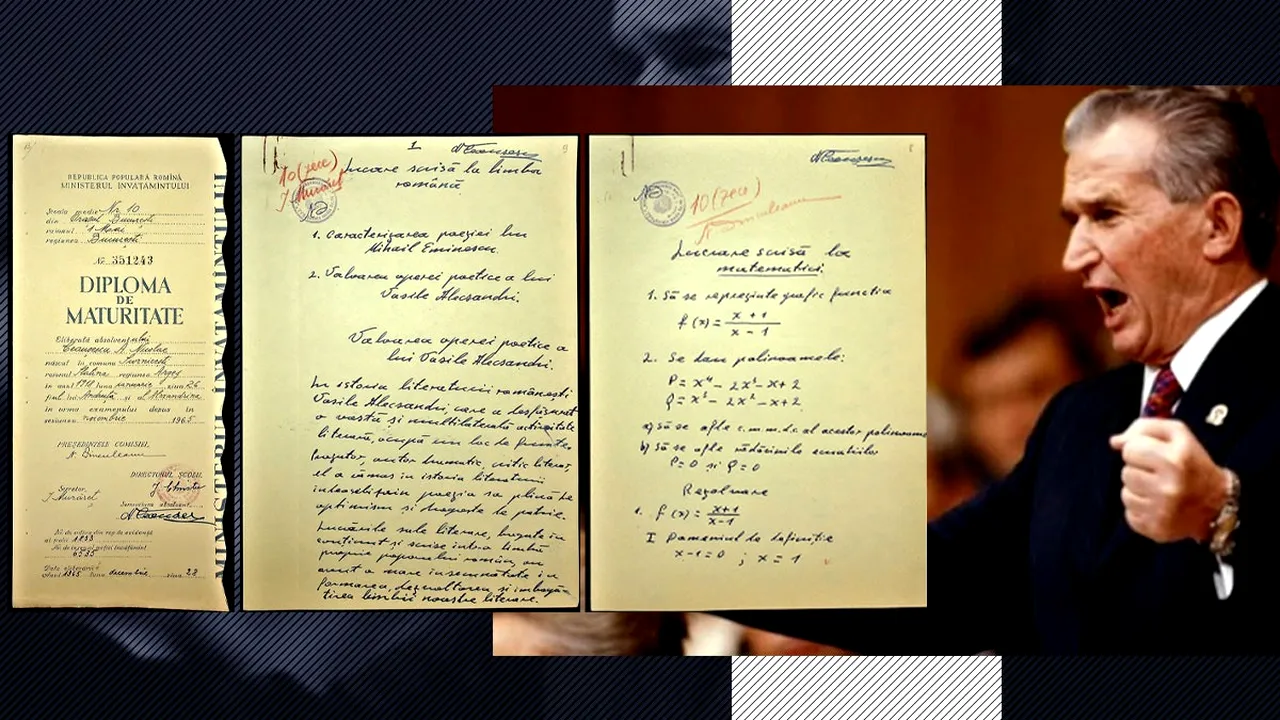 REPUBLICA POPULARĂ ROMÎNĂ
MINISTERUL INVĂŢAMINTULUI
Școala medie Nr. 10
din Orașul București
raionul 1 Mai
regiunea București
№ 351243
DIPLOMA
DE
MATURITATE
Eliberată absolventului
Ceaușescu A. Nicolae
născut în comuna
raionul Slatina regiunea Argeș
în anul 1918 luna ianuarie ziua 26
fiul lui Andruță și al Alexandrina
în urma examenului depus în
sesiunea noiembrie 1965
PREȘEDINTELE COMISIEI,
DIRECTORUL ȘCOLII,
Secretar,
Semnătura absolvent,
1965 luna decembrie ziua 23
MINISTERUL INVĂŢĂMÎNTULUI
1
N Ceaușescu
9
10 (zece)
Lucrare scrisă la limba
română
1. Caracterizarea poeziei lui
Mihail Eminescu.
2. Valoarea operei poetice a lui
Vasile Alecsandri.
Valoarea operei poetice a
lui Vasile Alecsandri.
In istoria literaturii românești
Vasile Alecsandri, care a desfășurat
o vastă și multilaterală activitate
literară, ocupă un loc de frunte.
Prozator, autor dramatic, critic literar
el a rămas în istoria literaturii
îndeosebi prin poezia sa plină de
optimism și dragoste de patrie.
Lucrările sale literare, bogate în
conținut și scrise într-o limbă
proprie poporului român, au
avut o mare însemnătate în
formarea, dezvoltarea și îmbogă-
țirea limbii noastre literare.
N Ceaușescu
8
10 (zece)
Lucrare scrisă la
matematici.
1. Să se reprezinte grafic functia
f (x) = x + 1 / x - 1
2. Se dau polinoamele:
P = x⁴ - 2x³ - x + 2
Q = x³ - 2x² - x + 2
a) Să se afle c.m.m.d.c al acestor polinoame
b) Să se afle rădăcinile ecuatiilor
P=0 si Q=0
Rezolvare
1. f (x) = x+1 / x-1
I Domeniul de definitie
x-1=0 ; x = 1